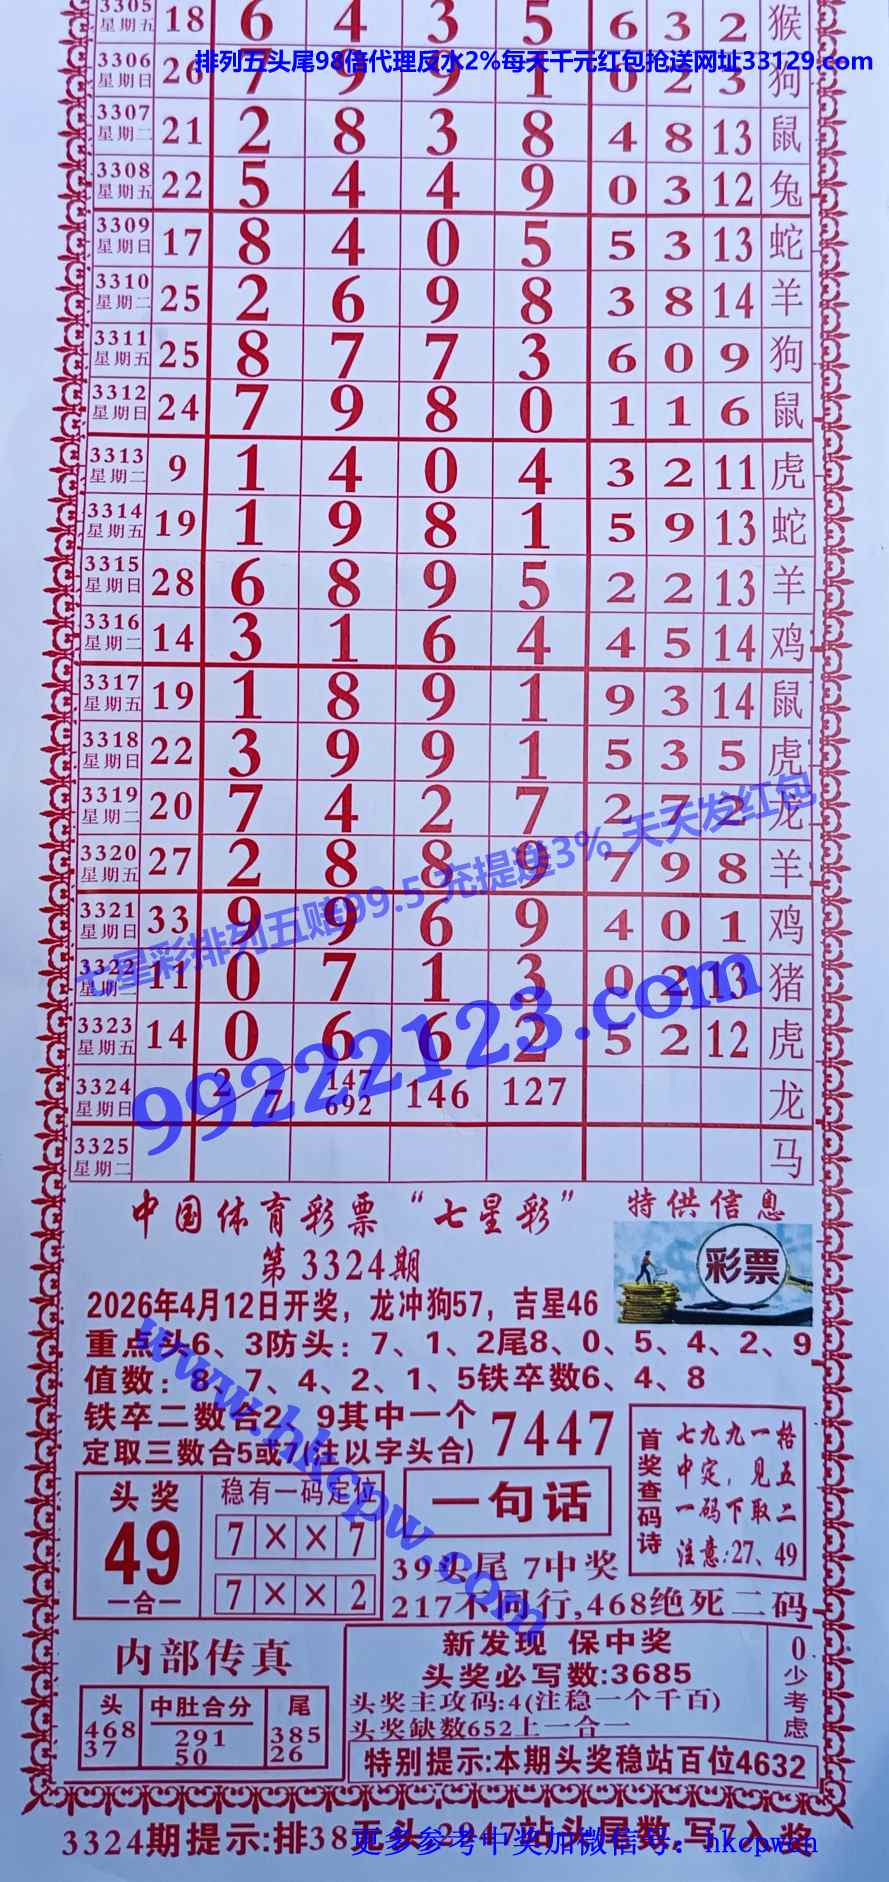 3305 星期五 18 6 4 3 5 6 3 2 猴
排列五头尾98倍代理反水2%每天千元红包抢送网址33129.com
3306 星期日 26 7 9 9 1 0 2 3 狗
3307 星期二 21 2 8 3 8 4 8 13 鼠
3308 星期五 22 5 4 4 9 0 3 12 兔
3309 星期日 17 8 4 0 5 5 3 13 蛇
3310 星期二 25 2 6 9 8 3 8 14 羊
3311 星期五 25 8 7 7 3 6 0 9 狗
3312 星期日 24 7 9 8 0 1 1 6 鼠
3313 星期二 9 1 4 0 4 3 2 11 虎
3314 星期五 19 1 9 8 1 5 9 13 蛇
3315 星期日 28 6 8 9 5 2 2 13 羊
3316 星期二 14 3 1 6 4 4 5 14 鸡
3317 星期五 19 1 8 9 1 9 3 14 鼠
3318 星期日 22 3 9 9 1 5 3 5 虎
3319 星期二 20 7 4 2 7 2 7 2 龙
3320 星期五 27 2 8 8 9 7 9 8 羊
七星彩排列五赔99.5 充提送3% 天天发红包
3321 星期日 33 9 9 6 9 4 0 1 鸡
3322 星期二 11 0 7 1 3 0 2 13 猪
3323 星期五 14 0 6 6 2 5 2 12 虎
99222123.com
3324 星期日 2 7 147 692 146 127 龙
3325 星期二 马
中国体育彩票“七星彩” 特供信息
第3324期
彩票
2026年4月12日开奖，龙冲狗57，吉星46
重点头6、3防头：7、1、2尾8、0、5、4、2、9
值数：8、7、4、2、1、5铁卒数6、4、8
铁卒二数合2、9其中一个
定取三数合5或7(注以字头合)
7447
首奖查码诗
七九九一格
中定，见五
一码下取二
注意:27、49
www.hkcpw.com
头奖
49
一合一
稳有一码定位
7 × × 7
7 × × 2
一句话
39头尾 7中奖
217不同行,468绝死二码
内部传真
头 中肚合分 尾
468 291 385
37 50 26
新发现 保中奖
头奖必写数:3685
头奖主攻码:4(注稳一个千百)
头奖缺数652上一合一
0少考虑
特别提示:本期头奖稳站百位4632
3324期提示:排38无头,2947站头尾数,写7入奖
更多参考中奖加微信号：hkcpwcn